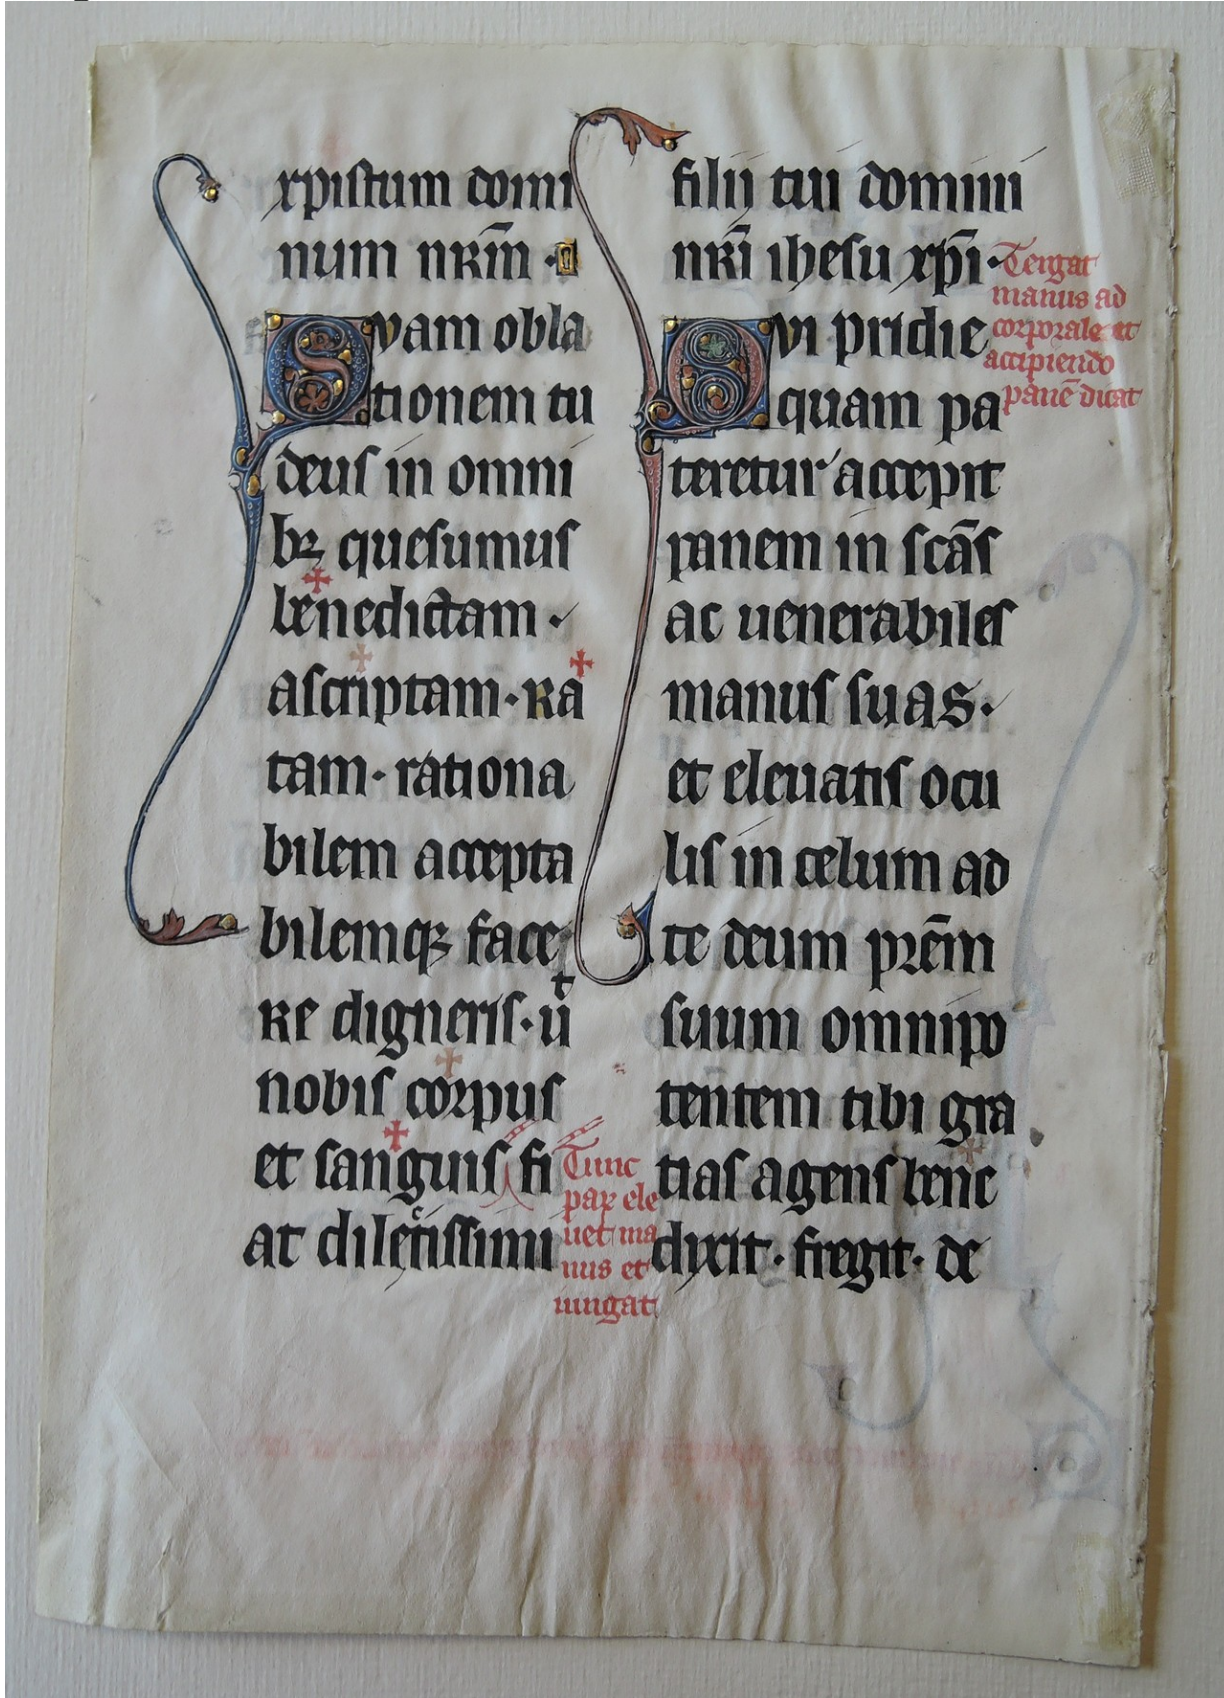 xpistum domi
num nr̄m ·
Qvam obla
tionem tu
deus in omni
bꝫ quesumus
benedictam ·
ascriptam · ra
tam · rationa
bilem accepta
bilemqꝫ face
re digneris · ut
nobis corpus
et sanguis fi
at dilectissimi
Tunc
par ele
uet ma
nus et
iungat
filii tui domini
nr̄i ihesu xp̄i ·
Qvi pridie
quam pa
teretur accepit
panem in sc̄as
ac uenerabiles
manus suas ·
et eleuatis ocu
lis in celum ad
te deum pr̄em
suum omnipo
tentem tibi gra
tias agens bene
dixit · fregit · de
Tergat
manus ad
corporale et
accipiendo
panē dicat